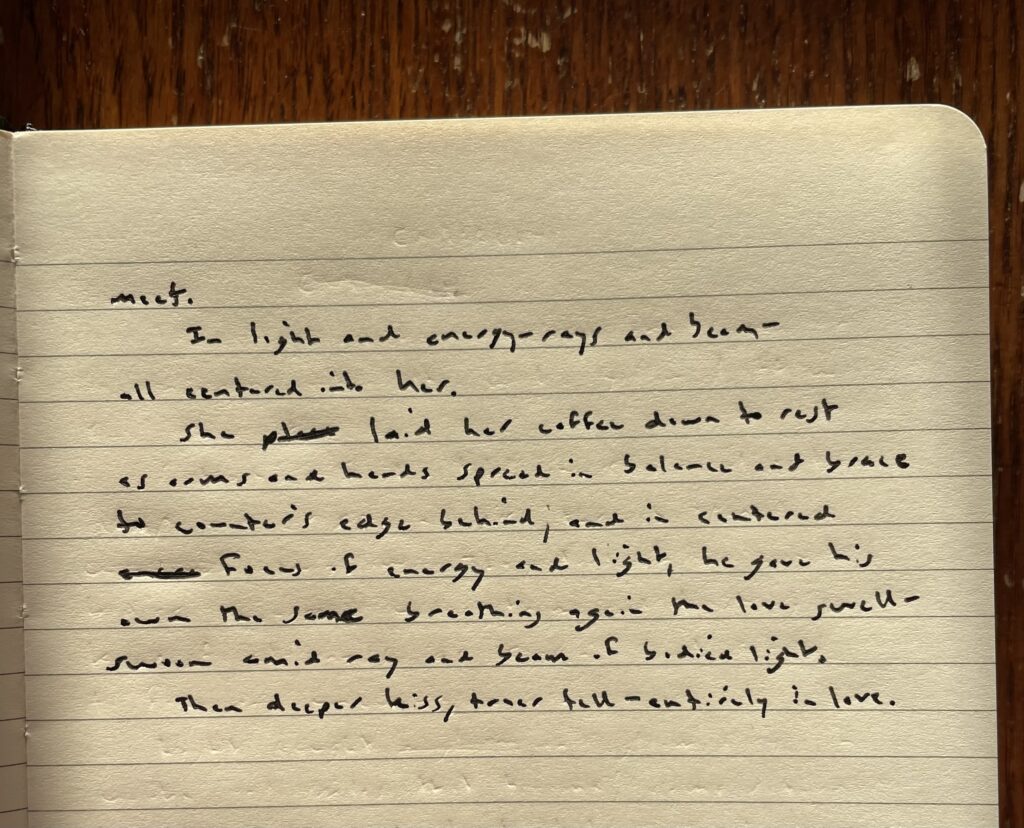 meet.
In light and energy-rays and beam-
all centered into her.
She laid her coffee down to rest
as arms and hands spread in balance and brace
to counter's edge behind, and in centered
focus of energy and light, he gave his
own the same breathing again the love swell-
swoon amid ray and beam of bodied light.
Then deeper kiss, truer fell-entirely in love.